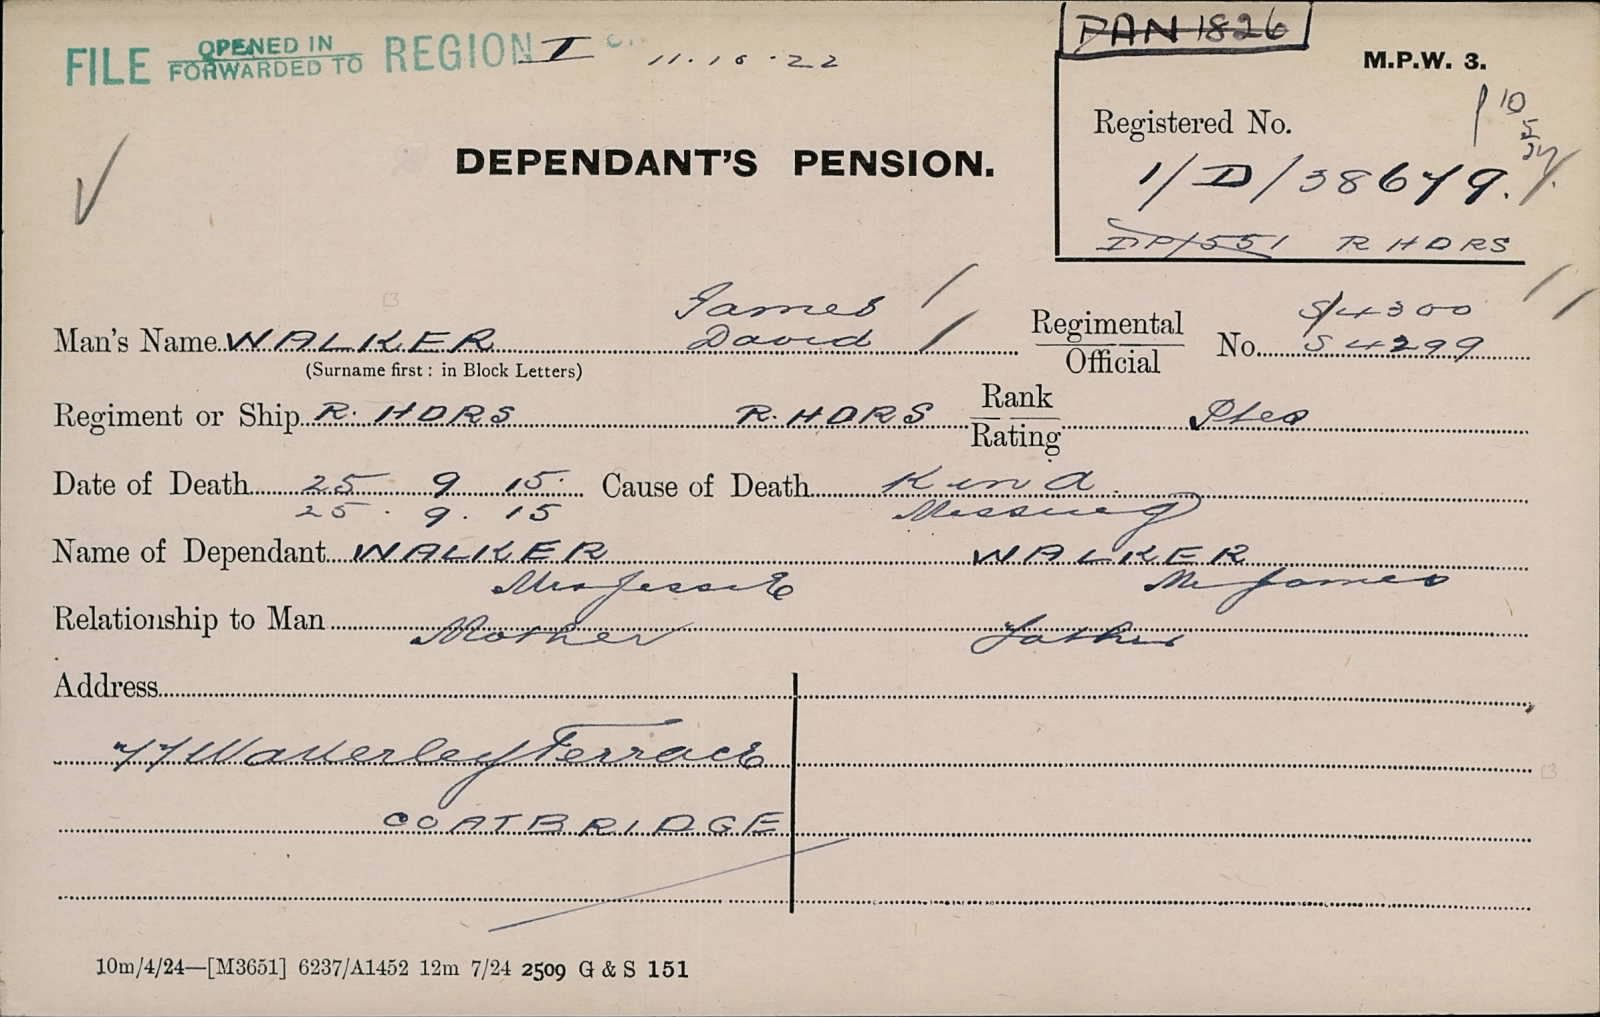 FILE OPENED IN FORWARDED TO REGION I 11.10.22
PAN 1826
M.P.W. 3.
Registered No.
10
5
24
1/D/38679.
DP/551 R HDRS
DEPENDANT'S PENSION.
James
Man's Name WALKER David
(Surname first: in Block Letters)
Regimental Official No. S/4300
S 4299
Regiment or Ship R. HDRS R. HDRS Rank Rating Ptes
Date of Death 25 9 15. Cause of Death K in A.
25. 9. 15 Missing
Name of Dependant WALKER WALKER
Mrs Jessie Mr James
Relationship to Man Mother Father
Address
77 Waverley Terrace
COATBRIDGE
10m/4/24—[M3651] 6237/A1452 12m 7/24 2509 G & S 151